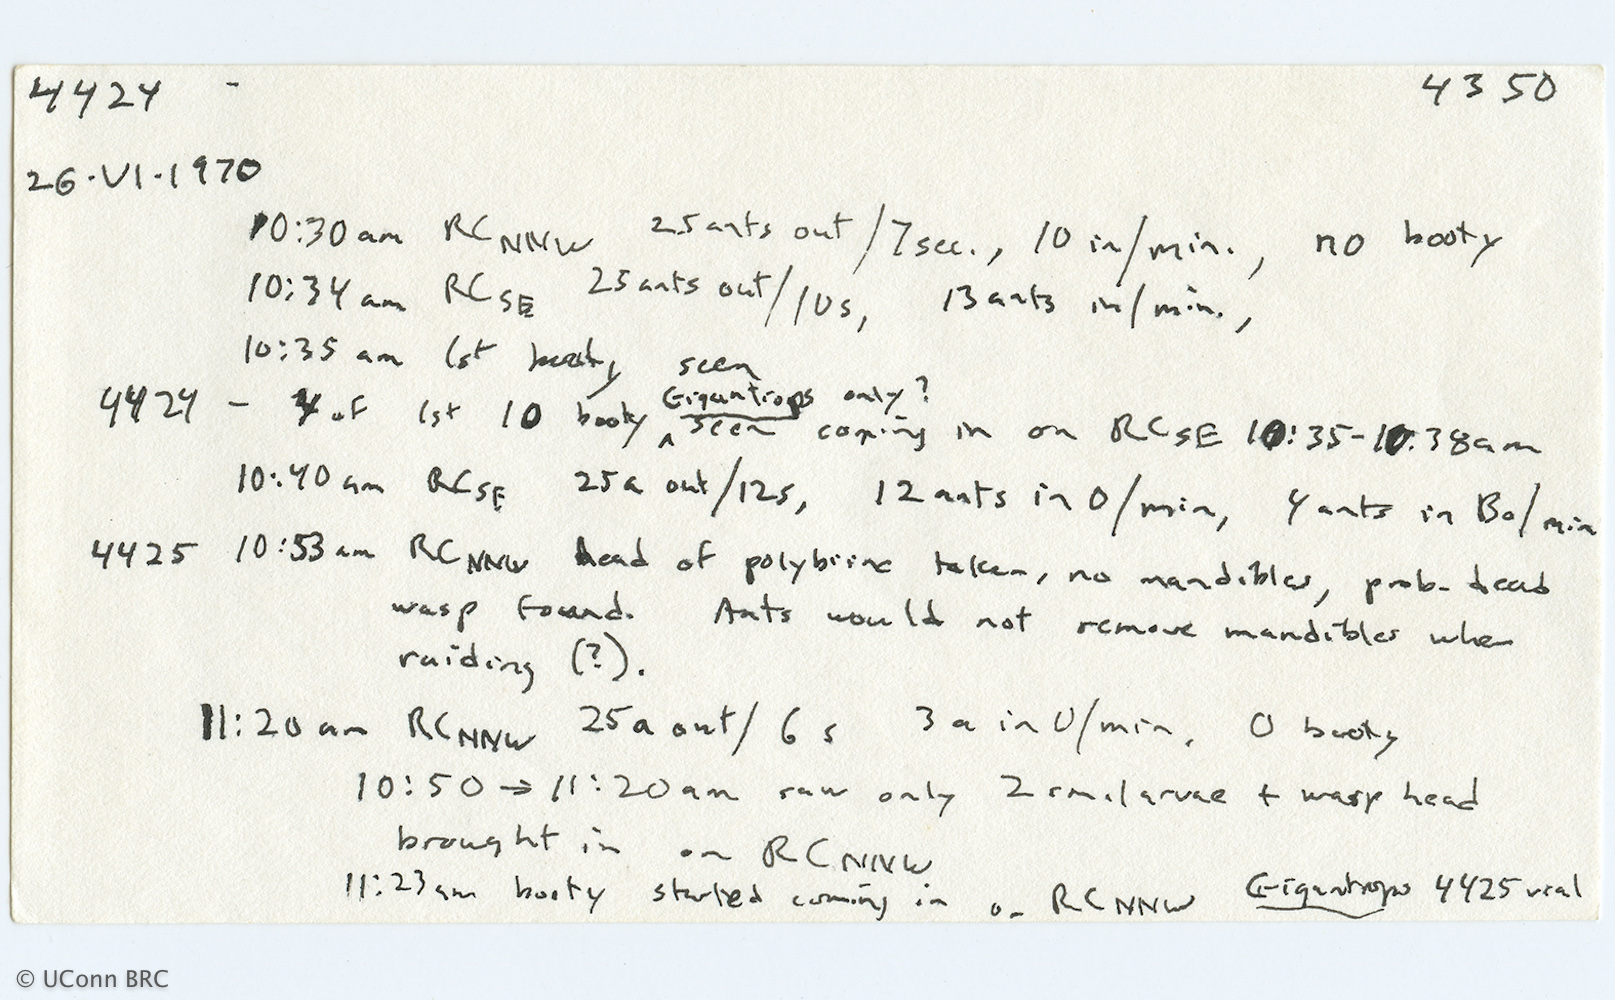 4424 - 4350
26·VI·1970
10:30am RCNNW 25 ants out/7sec., 10 in/min., no booty
10:34am RCSE 25 ants out/10s, 13 ants in/min.,
10:35 am 1st booty seen
Gigantiops only?
4424 - 4 of 1st 10 booty ^ seen coming in on RCSE 10:35-10:38am
10:40am RCSE 25a out/12s, 12 ants in 0/min, 4 ants in Bo/min
4425 10:53am RCNNW head of polybiine taken, no mandibles, prob. dead
wasp found. Ants would not remove mandibles when
raiding (?).
11:20am RCNNW 25a out/ 6 s 3 a in 0/min, 0 booty
10:50 → 11:20am saw only 2 larvae + wasp head
brought in on RCNNW
11:23am booty started coming in on RCNNW Gigantiops 4425 vial
© UConn BRC